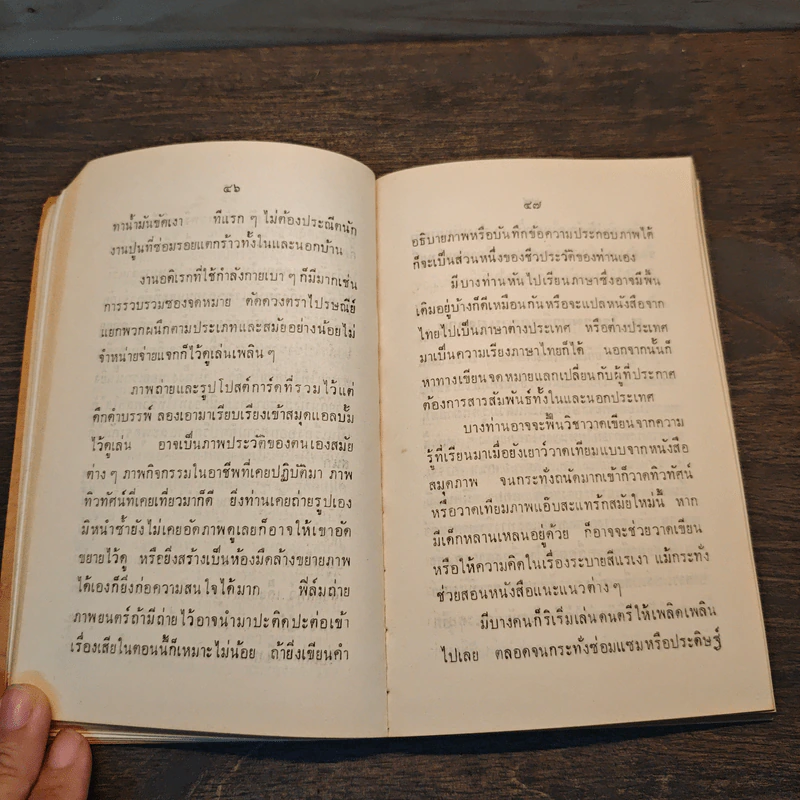 ๔๖
ทาน้ำมันขัดเงา ทีแรก ๆ ไม่ต้องประณีตนัก
งานปูนที่ซ่อมรอยแตกร้าวทั้งในและนอกบ้าน
งานอดิเรกที่ใช้กำลังกายเบา ๆ ก็มีมากเช่น
การรวบรวมซองจดหมาย ตัดดวงตราไปรษณีย์
แยกพวกผนึกตามประเภทและสมัยอย่างน้อยไม่
จำหน่ายจ่ายแจกก็ไว้ดูเล่นเพลิน ๆ
ภาพถ่ายและรูปโปสต์การ์ดที่รวมไว้แต่
ดึกดำบรรพ์ ลองเอามาเรียบเรียงเข้าสมุดแอลบั้ม
ไว้ดูเล่น อาจเป็นภาพประวัติของตนเองสมัย
ต่าง ๆ ภาพกิจกรรมในอาชีพที่เคยปฏิบัติมา ภาพ
ทิวทัศน์ที่เคยเที่ยวมาก็ดี ยิ่งท่านเคยถ่ายรูปเอง
มิหนำซ้ำยังไม่เคยอัดภาพดูเลยก็อาจให้เขาอัด
ขยายไว้ดู หรือยิ่งสร้างเป็นห้องมืดล้างขยายภาพ
ได้เองก็ยิ่งก่อความสนใจได้มาก ฟิล์มถ่าย
ภาพยนตร์ถ้ามีถ่ายไว้อาจนำมาปะติดปะต่อเข้า
เรื่องเสียในตอนนี้ก็เหมาะไม่น้อย ถ้ายิ่งเขียนคำ
๔๗
อธิบายภาพหรือบันทึกข้อความประกอบภาพได้
ก็จะเป็นส่วนหนึ่งของชีวประวัติของท่านเอง
มีบางท่านหันไปเรียนภาษาซึ่งอาจมีพื้น
เดิมอยู่บ้างก็ดีเหมือนกันหรือจะแปลหนังสือจาก
ไทยไปเป็นภาษาต่างประเทศ หรือต่างประเทศ
มาเป็นความเรียงภาษาไทยก็ได้ นอกจากนั้นก็
หาทางเขียนจดหมายแลกเปลี่ยนกับผู้ที่ประกาศ
ต้องการสารสัมพันธ์ทั้งในและนอกประเทศ
บางท่านอาจจะฟื้นวิชาวาดเขียนจากความ
รู้ที่เรียนมาเมื่อยังเยาว์วาดเทียมแบบจากหนังสือ
สมุดภาพ จนกระทั่งถนัดมากเข้าก็วาดทิวทัศน์
หรือวาดเทียมภาพแอ๊บสะแทร้กสมัยใหม่นี้ หาก
มีเด็กหลานเหลนอยู่ด้วย ก็อาจจะช่วยวาดเขียน
หรือให้ความคิดในเรื่องระบายสีแรเงา แม้กระทั่ง
ช่วยสอนหนังสือแนะแนวต่าง ๆ
มีบางคนก็ริเริ่มเล่นดนตรีให้เพลิดเพลิน
ไปเลย ตลอดจนกระทั่งซ่อมแซมหรือประดิษฐ์